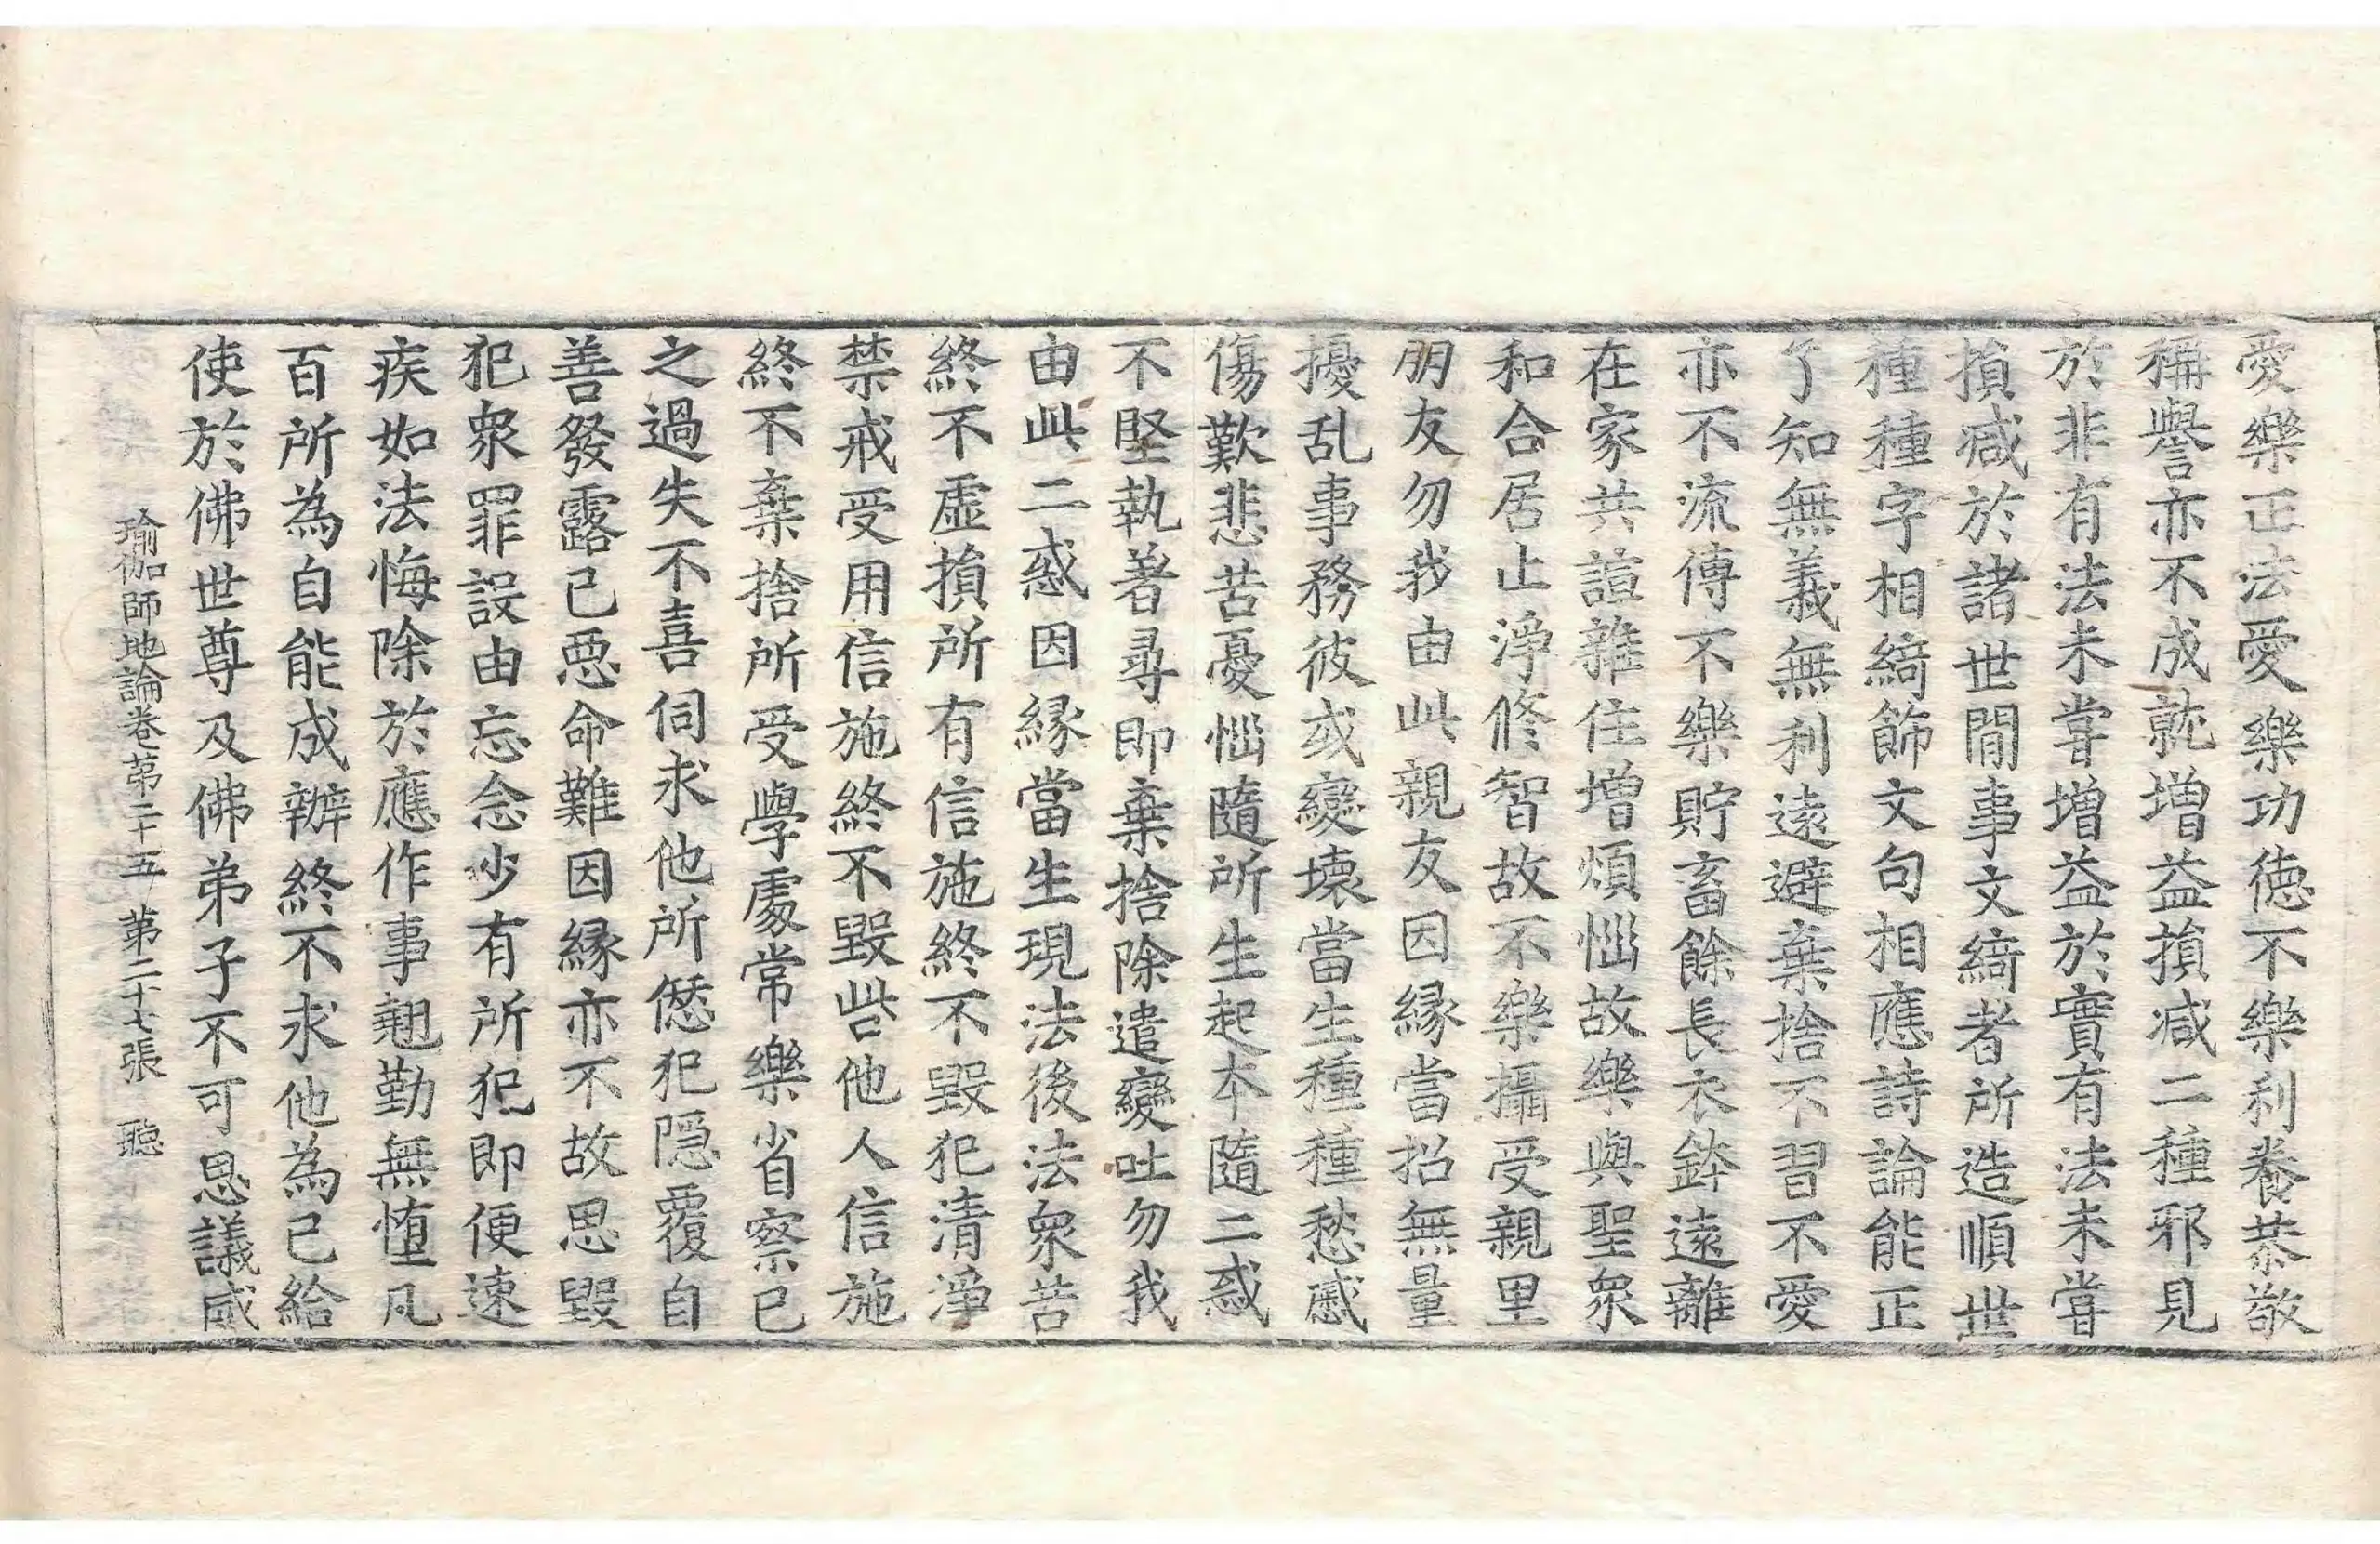 愛樂正法愛樂功德不樂利養恭敬
稱譽亦不成就增益損减二種邪見
於非有法未嘗增益於實有法未嘗
損减於諸世間事文綺者所造順世
種種字相綺飾文句相應詩論能正
了知無義無利遠避棄捨不習不愛
亦不流傳不樂貯畜餘長衣鉢遠離
在家共諠雜住增煩惱故樂與聖衆
和合居止淨修智故不樂攝受親里
朋友勿我由此親友因緣當招無量
擾乱事務彼或變壞當生種種愁慼
傷歎悲苦憂惱隨所生起本隨二惑
不堅執著尋即棄捨除遣變吐勿我
由此二惑因緣當生現法後法衆苦
終不虛損所有信施終不毀犯清淨
禁戒受用信施終不毀呰他人信施
終不棄捨所受學處常樂省察已
之過失不喜伺求他所𠍴犯隱覆自
善發露已惡命難因緣亦不故思毀
犯衆罪設由忘念少有所犯即便速
疾如法悔除於應作事翹勤無墮凡
百所為自能成辦終不求他為己給
使於佛世尊及佛弟子不可思議威
瑜伽師地論卷第二十五 第二十七張 聦